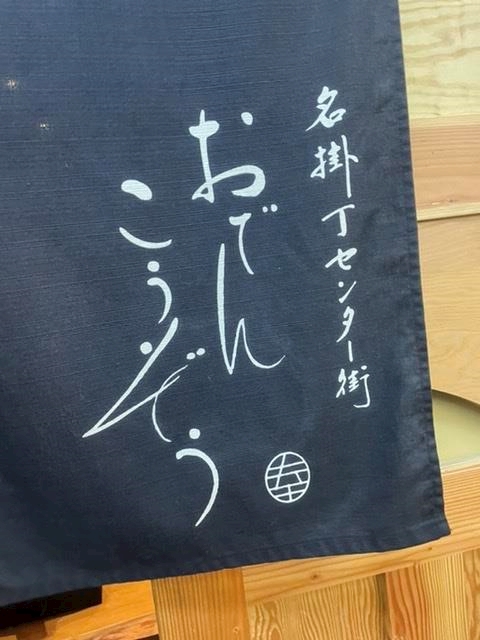 名掛丁センター街
おでん
こうぞう